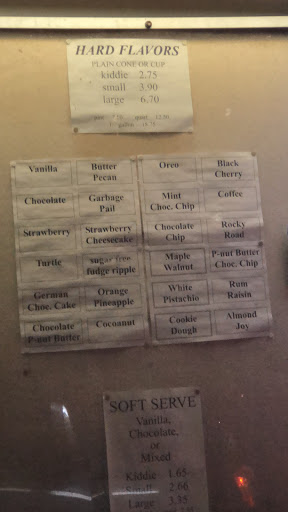 HARD FLAVORS
PLAIN CONE OR CUP
kiddie 2.75
small 3.90
large 6.70
Vanilla
Butter
Pecan
Chocolate
Garbage
Pail
Strawberry
Strawberry
Cheesecake
Turtle
sugar free
fudge ripple
German
Choc. Cake
Orange
Pineapple
Chocolate
P-nut Butter
Cocoanut
Oreo
Black
Cherry
Mint
Choc. Chip
Coffee
Chocolate
Chip
Rocky
Road
Maple
Walnut
P-nut Butter
Choc. Chip
White
Pistachio
Rum
Raisin
Cookie
Dough
Almond
Joy
SOFT SERVE
Vanilla,
Chocolate,
or
Mixed
Kiddie 1.65
Small 2.66
Large 3.35